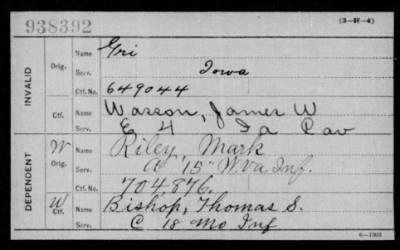 938392
(3—H—4)
INVALID
Orig.
Name Gri
Serv. Iowa
Ctf. No. 649044
Ctf.
Name Wasson, James W
Serv. E 4 Ia Cav
DEPENDENT
W
Orig.
Name Riley, Mark
Serv. A 15" Wva Inf.
Ctf. No. 704876.
W
Ctf.
Name Bishop, Thomas S.
Serv. C 18 Mo Inf